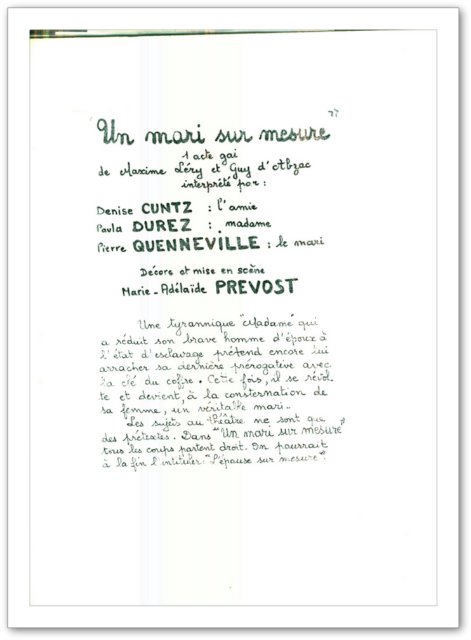 "Un mari sur mesure"
1 acte gai
de Maxime Léry et Guy d'Abzac
interprété par :
Denise CUNTZ : l'amie
Paula DUREZ : madame
Pierre QUENNEVILLE : le mari
Décors et mise en scène
Marie-Adélaïde PREVOST
Une tyrannique "Madame" qui
a réduit son brave homme d'époux à
l'état d'esclavage prétend encore lui
arracher sa dernière prérogative avec
la clé du coffre. Cette fois, il se révol-
te et devient, à la consternation de
sa femme, un véritable mari..
Les sujets au théâtre ne sont que
des prétextes. Dans "Un mari sur mesure"
tous les coups partent droit. On pourrait
à la fin l'intituler: "L'épouse sur mesure".